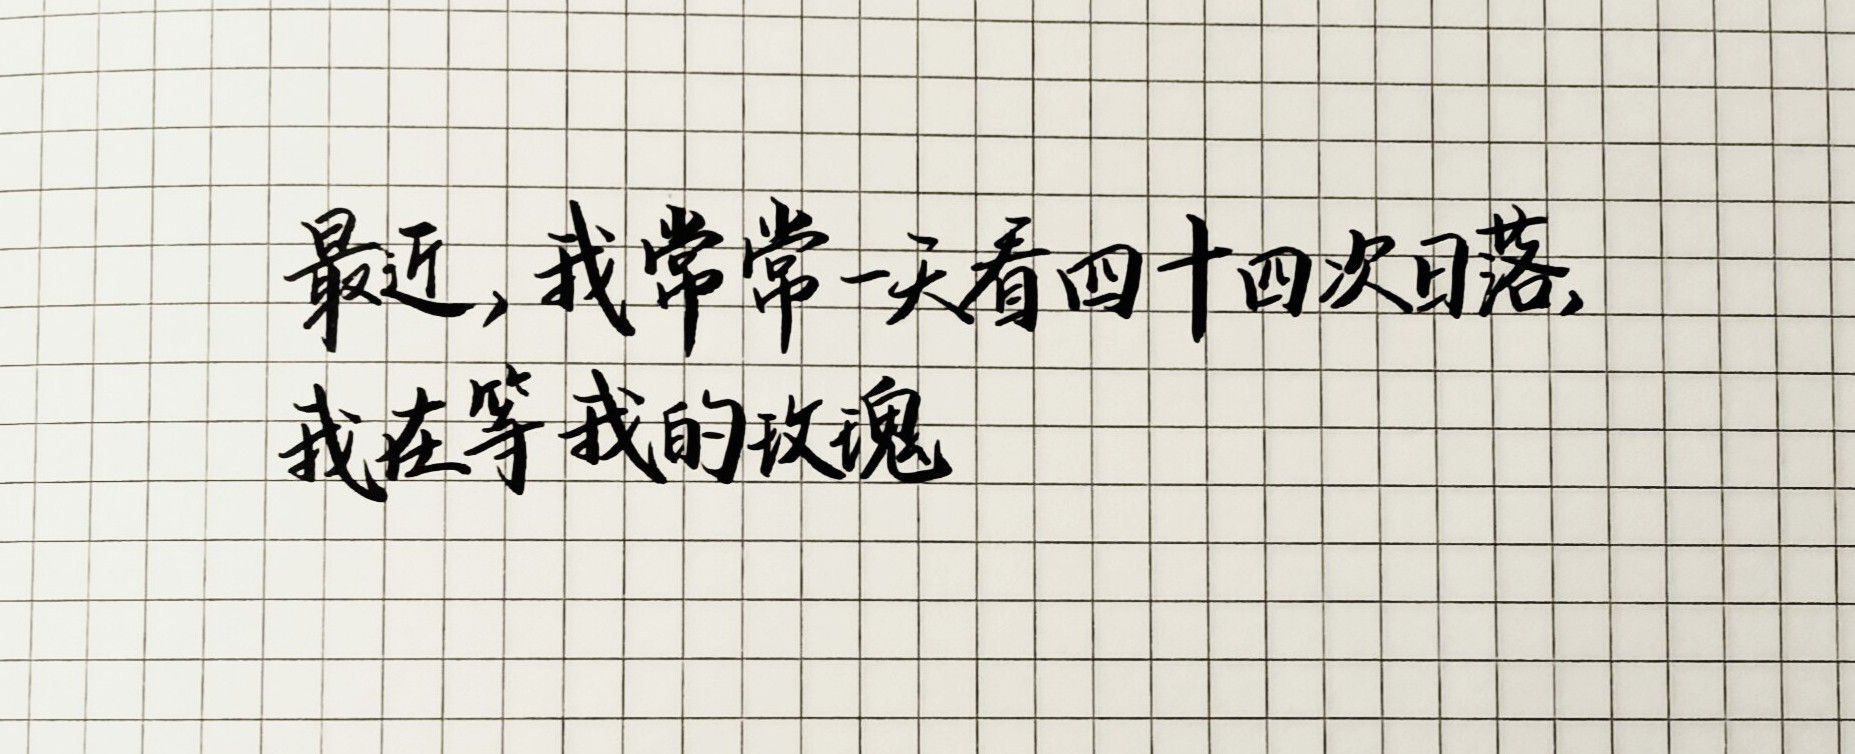 最近，我常常一天看四十四次日落，
我在等我的玫瑰